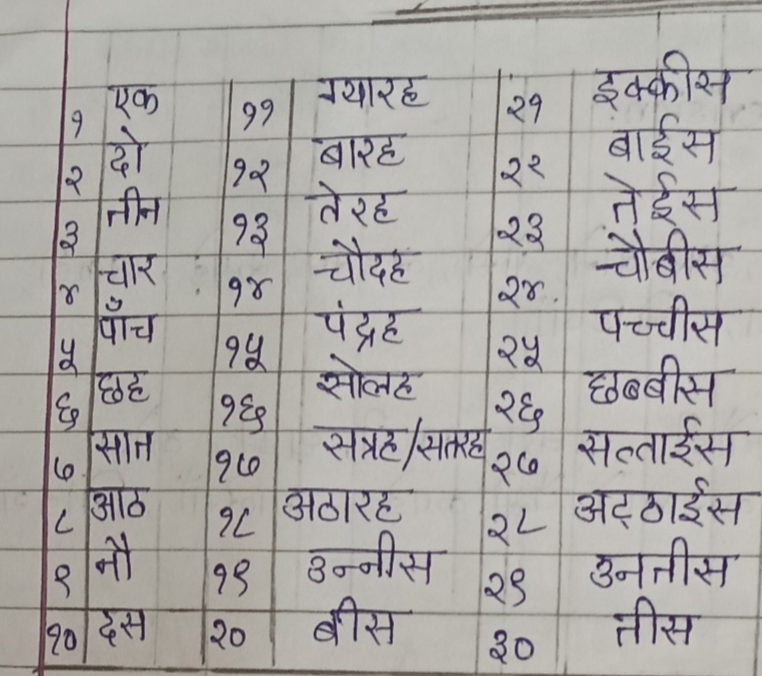 १ एक ११ ग्यारह २१ इक्कीस
२ दो १२ बारह २२ बाईस
३ तीन १३ तेरह २३ तेईस
४ चार १४ चौदह २४ चौबीस
५ पाँच १५ पंद्रह २५ पच्चीस
६ छह १६ सोलह २६ छब्बीस
७ सात १७ सत्रह/सतरह २७ सत्ताईस
८ आठ १८ अठारह २८ अट्ठाईस
९ नौ १९ उन्नीस २९ उनतीस
१० दस २० बीस ३० तीस